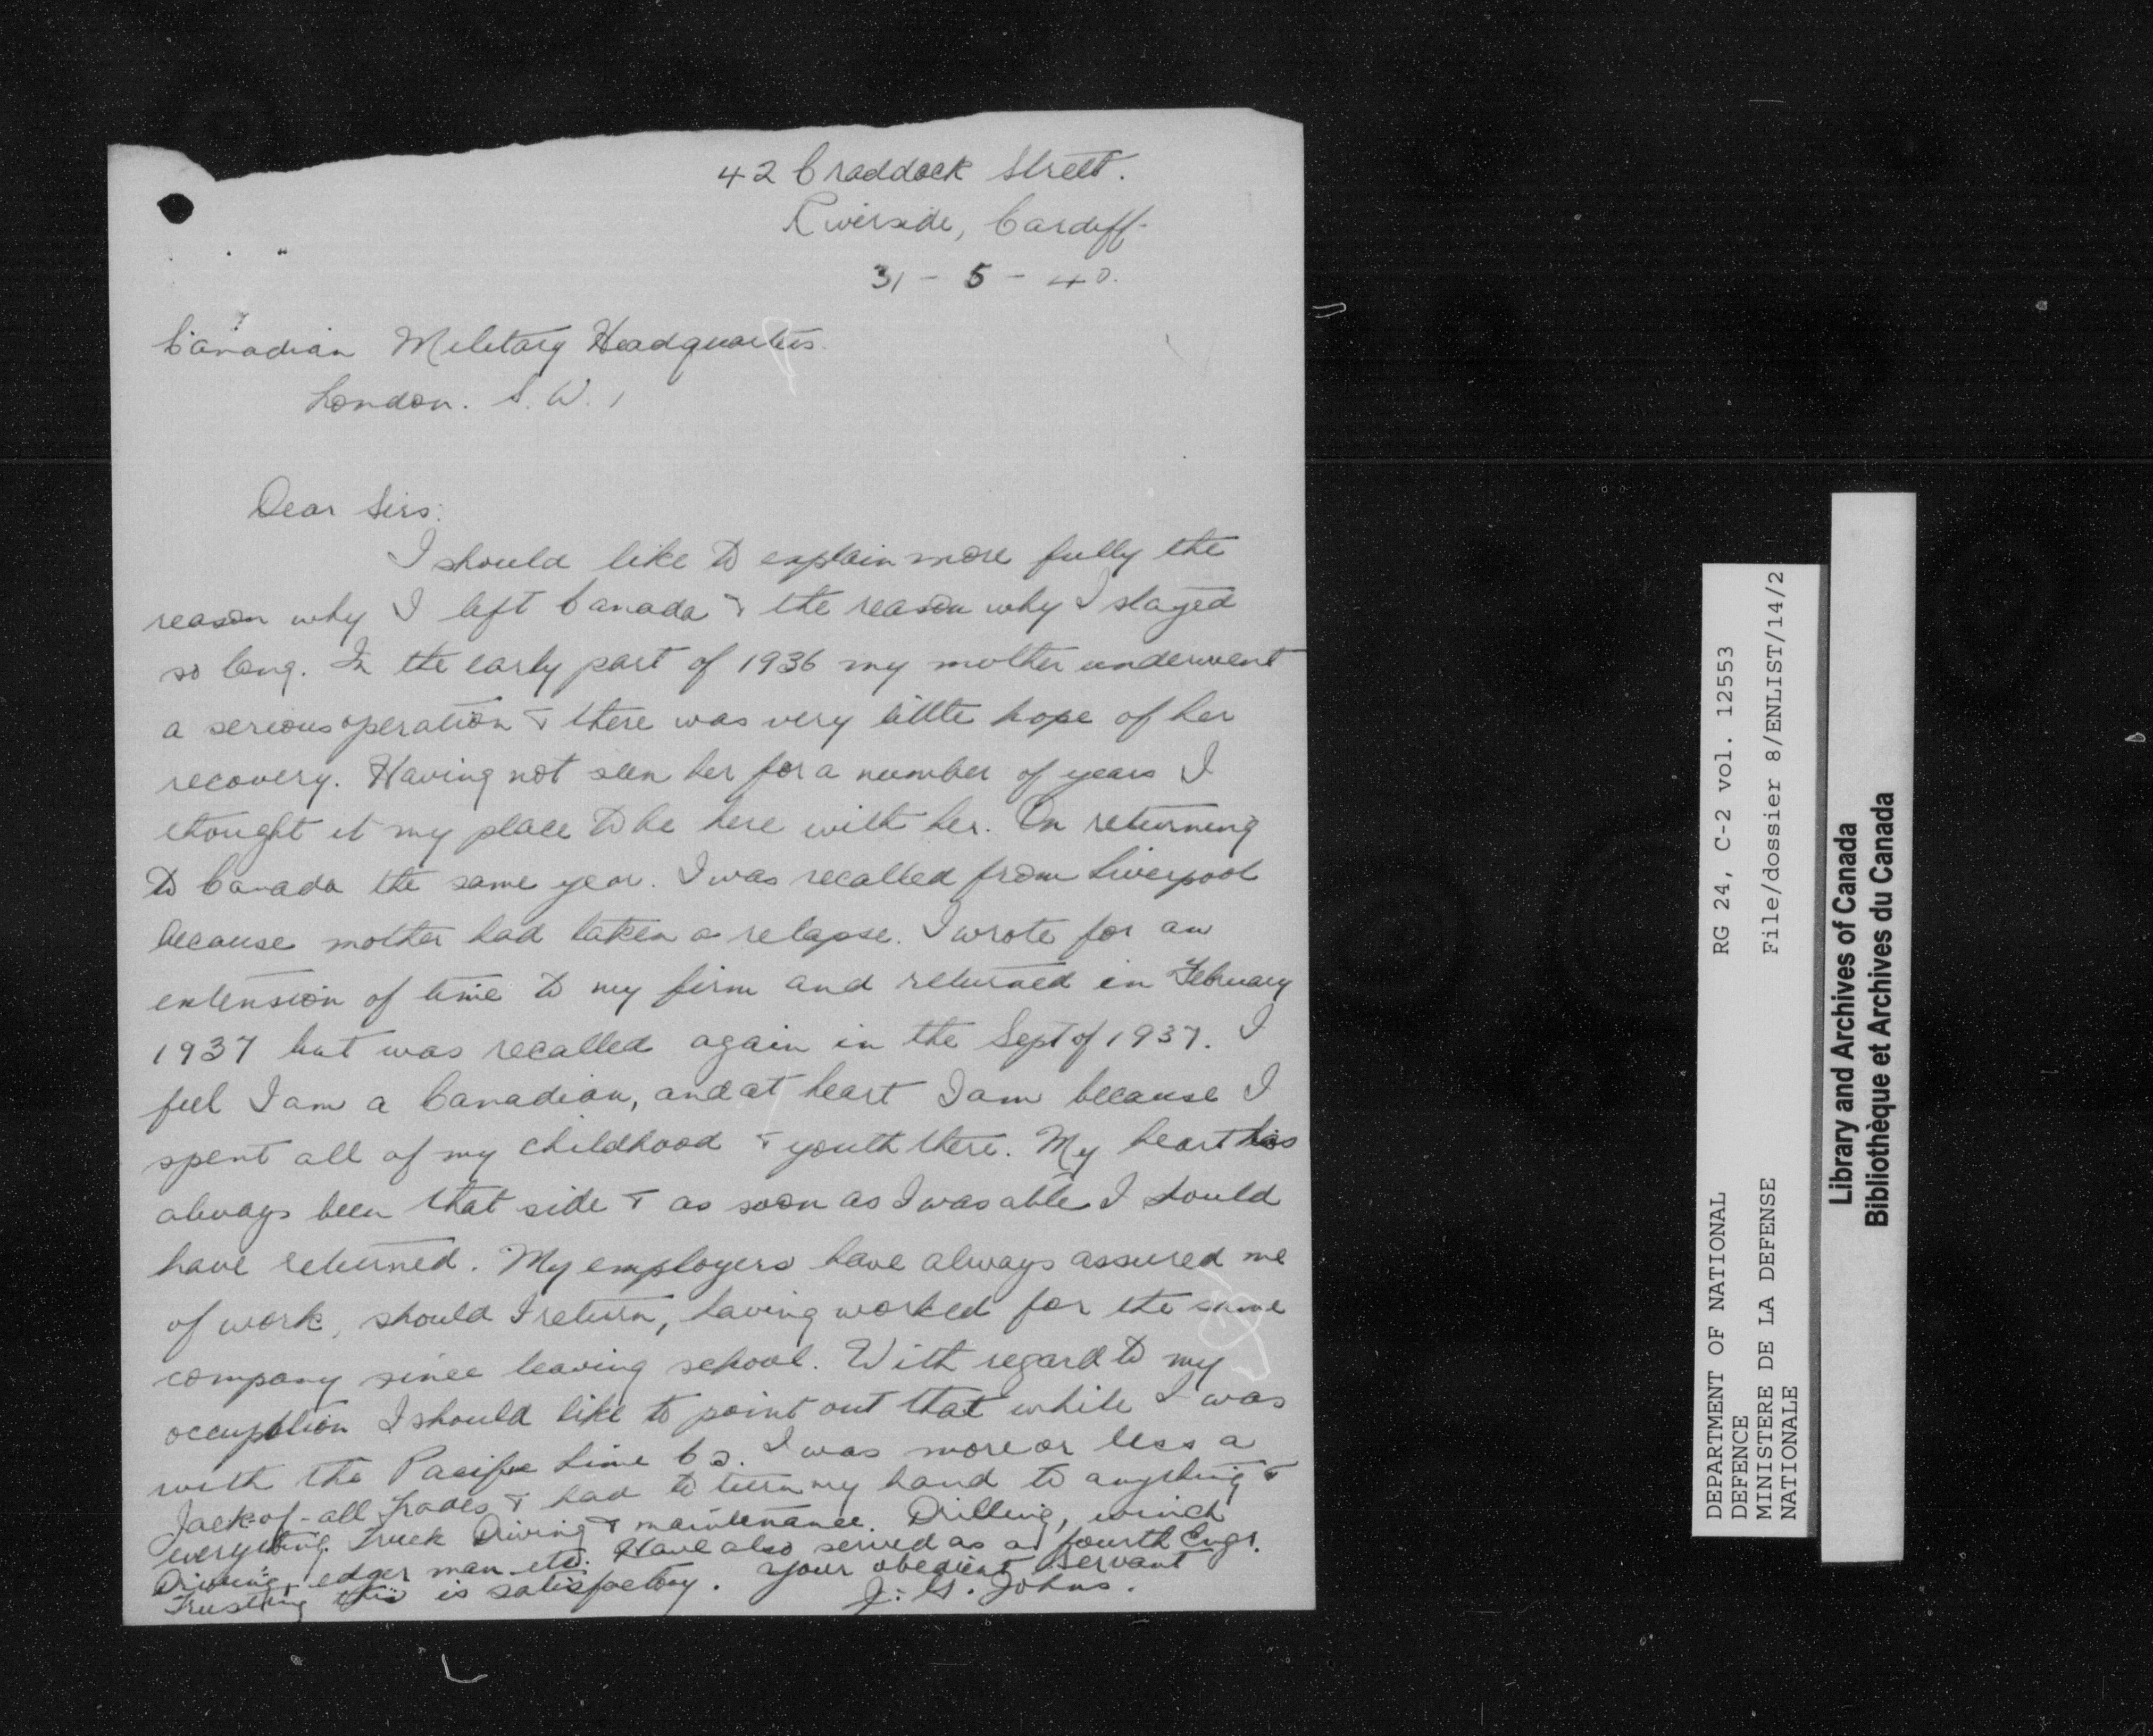 42 Craddock Street.
Riverside, Cardiff.
31 - 5 - 40.
Canadian Military Headquarters.
London. S. W. 1
Dear Sirs:
I should like to explain more fully the
reason why I left Canada & the reason why I stayed
so long. In the early part of 1936 my mother underwent
a serious operation & there was very little hope of her
recovery. Having not seen her for a number of years I
thought it my place to be here with her. On returning
to Canada the same year. I was recalled from Liverpool
because mother had taken a relapse. I wrote for an
extension of time to my firm and returned in February
1937 but was recalled again in the Sept of 1937. I
feel I am a Canadian, and at heart I am because I
spent all of my childhood & youth there. My heart has
always been that side & as soon as I was able I should
have returned. My employers have always assured me
of work, should I return, having worked for the same
company since leaving school. With regard to my
occupation I should like to point out that while I was
with the Pacific Lime Co. I was more or less a
Jack-of-all trades & had to turn my hand to anything &
everything. Truck Driving & maintenance. Drilling, winch
Driving, edger man etc. Have also served as a fourth Engr.
Trusting this is satisfactory. Your obedient servant
J. G. Johns.
DEPARTMENT OF NATIONAL
DEFENCE
MINISTERE DE LA DEFENSE
NATIONALE
RG 24, C-2 vol. 12553
File/dossier 8/ENLIST/14/2
Library and Archives of Canada
Bibliothèque et Archives du Canada